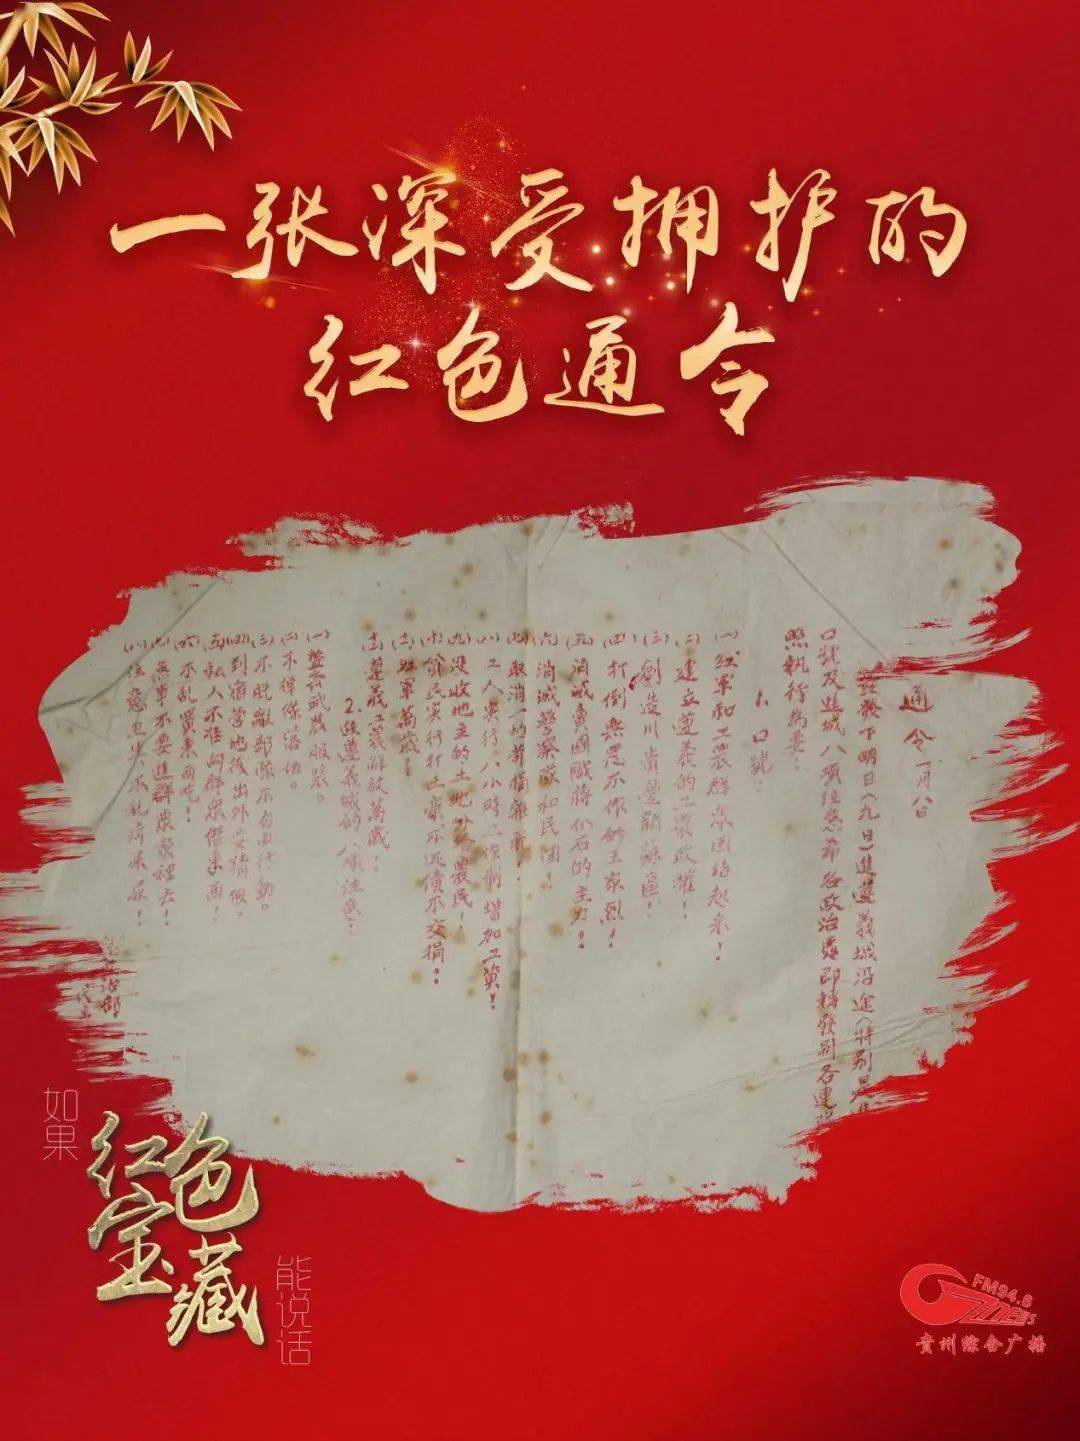 一张深受拥护的
红色通令
通令 一月八日
兹發下明日(九日)進遵義城沿途(特别是
口號及進城八項注意希各政治處即轉發到各連
照執行為要:
1.口號:
(一)红軍和工農群衆团结起来!
(二)建立遵義的工農政權!
(三)創造川貴邊新蘇區!
(四)打倒無惡不作的王家烈!
(五)消滅賣國賊蔣介石的主力!
(六)消滅警察隊和民团!
(七)取消一切苛捐雜税!
(八)工人实行八小時工作制增加工資!
(九)没收地主的土地分给農民!
(十)貧民实行打土豪不还债不交捐!
(十一)红軍萬歲!
(十二)遵義工農解放萬歲!
2.進遵義城的八項注意:
(一)整齐武装服装。
(二)不掉隊落伍。
(三)不脱離部隊不自由行動。
(四)到宿营地後出外要請假。
(五)私人不准向群衆借東西!
(六)不乱買東西吃!
(七)無事不要進群衆家裡去!
(八)注意卫生,不乱屙屎尿!
治部
如果
红色
宝藏
能说话
FM94.6
GZNEWS
贵州综合广播